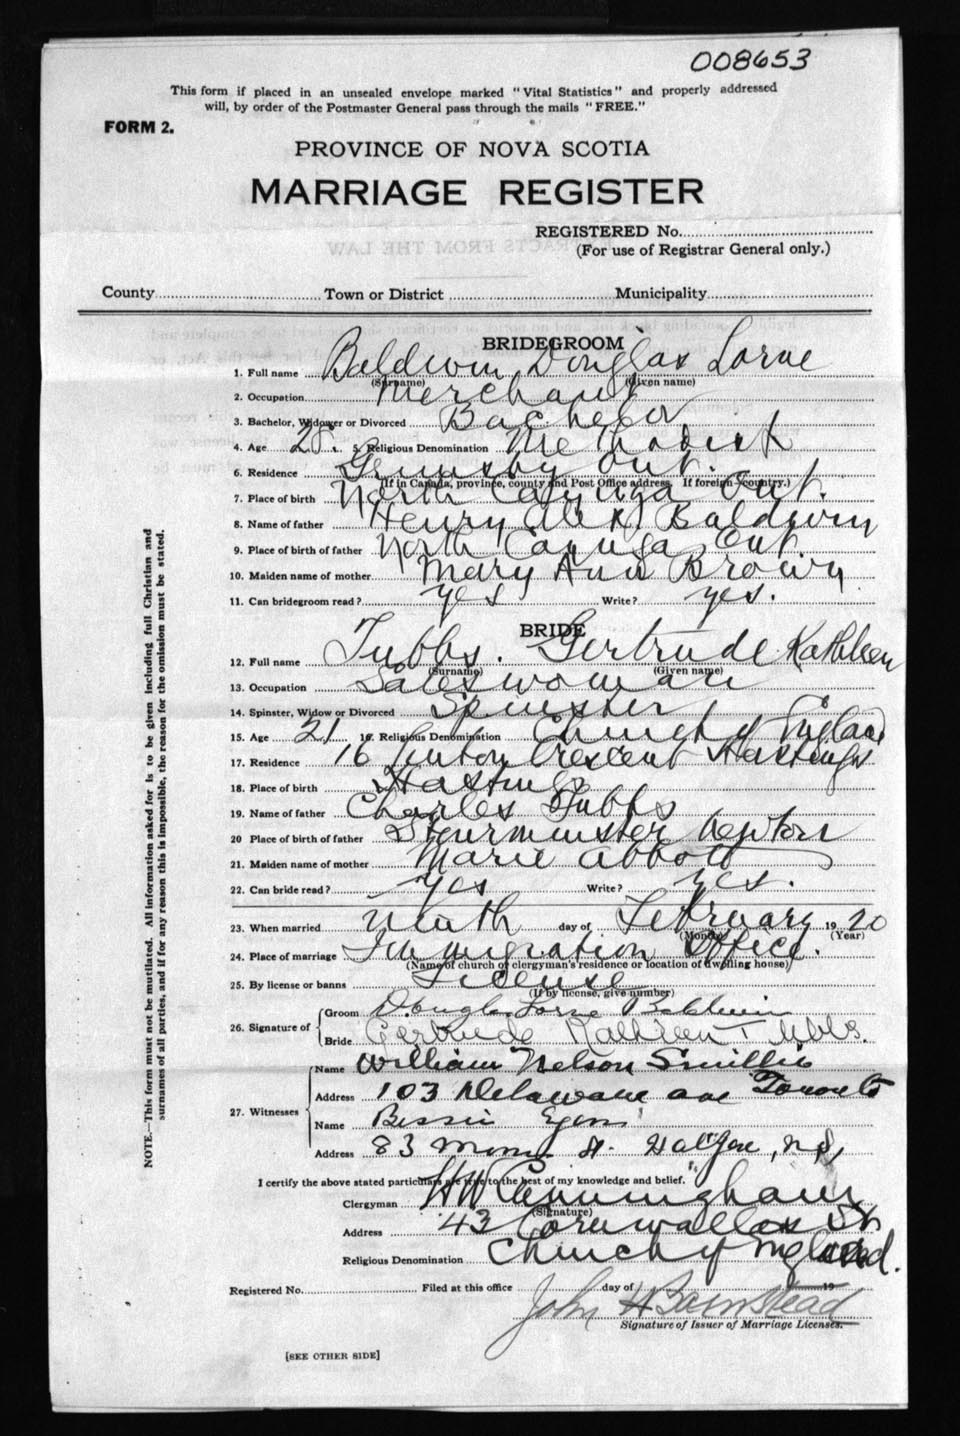 008653
This form if placed in an unsealed envelope marked "Vital Statistics" and properly addressed
will, by order of the Postmaster General pass through the mails "FREE."
FORM 2.
PROVINCE OF NOVA SCOTIA
MARRIAGE REGISTER
REGISTERED No.
(For use of Registrar General only.)
County Town or District Municipality
BRIDEGROOM
1. Full name Baldwin Douglas Lorne
(Surname) (Given name)
2. Occupation Merchant
3. Bachelor, Widower or Divorced Bachelor
4. Age 28 5. Religious Denomination Methodist
6. Residence Grimsby Ont.
(If in Canada, province, county and Post Office address. If foreign country.)
7. Place of birth North Cayuga Ont.
8. Name of father Henry Alex Baldwin
9. Place of birth of father North Cayuga Ont.
10. Maiden name of mother Mary Ann Brown
11. Can bridegroom read? yes Write? yes.
BRIDE
12. Full name Tubbs. Gertrude Kathleen
(Surname) (Given name)
13. Occupation Saleswoman
14. Spinster, Widow or Divorced Spinster
15. Age 21 16. Religious Denomination Church of England
17. Residence 16 Crescent Hastings
18. Place of birth Hastings
19. Name of father Charles Tubbs
20 Place of birth of father Sturminster Newton
21. Maiden name of mother Marie Abbott
22. Can bride read? yes Write? yes.
23. When married Ninth day of February 1920
(Month) (Year)
24. Place of marriage Immigration Office.
(Name of church of clergyman's residence or location of dwelling house)
25. By license or banns License
(If by license, give number)
26. Signature of
Groom Douglas Lorne Baldwin
Bride Gertrude Kathleen Tubbs.
27. Witnesses
Name William Nelson Smillie
Address 103 Delaware ave Toronto
Name Bessie
Address 83 St. Halifax, N.S,
I certify the above stated particulars are true to the best of my knowledge and belief.
Clergyman H W Cunningham
(Signature)
Address 43 Cornwallis St.
Religious Denomination Church of England.
Registered No. Filed at this office day of 19
John H Barnstead
Signature of Issuer of Marriage Licenses.
[SEE OTHER SIDE]
NOTE.—This form must not be mutilated. All information asked for is to be given including full Christian and
surnames of all parties, and if for any reason this is impossible, the reason for the omission must be stated.